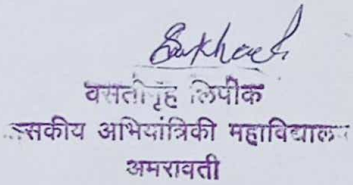 वसतीगृह लिपीक
सकीय अभियांत्रिकी महाविद्याल
अमरावती